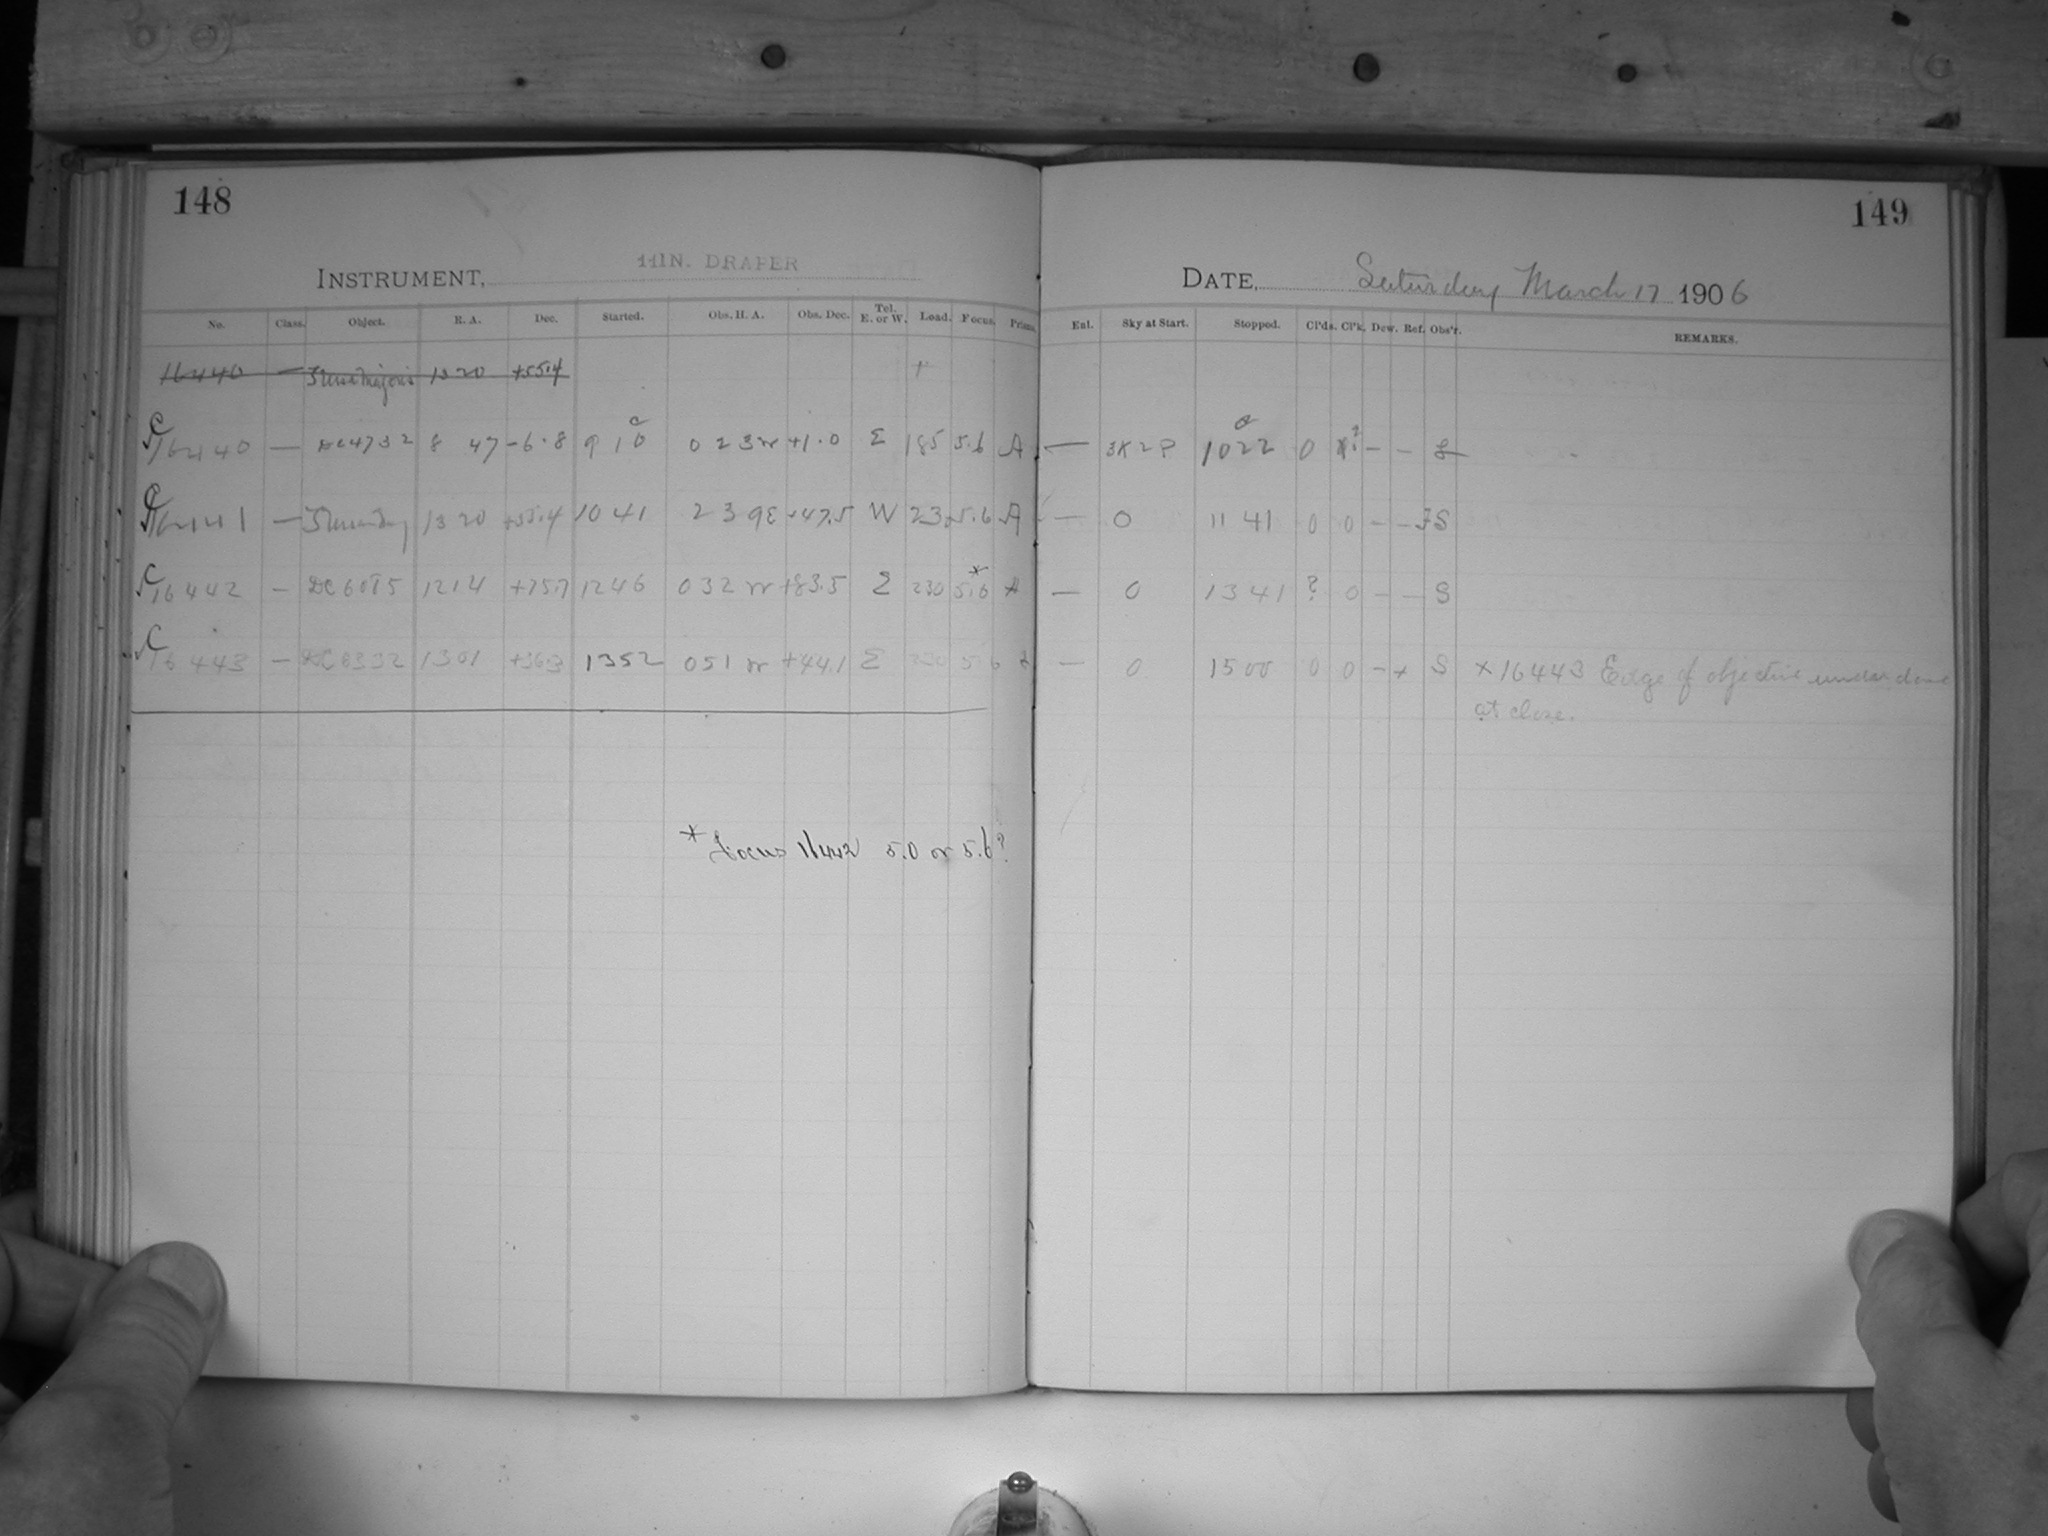 148
149
INSTRUMENT, 11 IN. DRAPER
DATE, Saturday March 17 1906
No. Class. Object. R.A. Dec. Started. Obs. H.A. Obs. Dec. Tel. E. or W. Load. Focus. Prism. Enl. Sky at Start. Stopped. Cl'ds. Cl'k. Dew. Ref. Obs'r. REMARKS.
16440 — J Ursa Majoris 13 20 +55.4 +
C 16440 — DC4732 8 47 -6.8 9 10 0 23 W +1.0 E 185 5.6 A — 3K2P 1022 0 - - S
C 16441 — 13 20 +55.4 1041 2 39E +47.5 W 230 5.6 A — 0 11 41 0 0 - - JS
C 16442 — DC6075 1214 +75.7 1246 032 W +83.5 E 230 5.6* A — 0 1341 ? 0 - - S
C 16443 — DC6332 1301 +36.3 1352 051 W +44.1 E 230 5.6 — 0 1500 0 0 - + S × 16443 Edge of objective under dome
at close.
* Focus 16442 5.0 or 5.6?